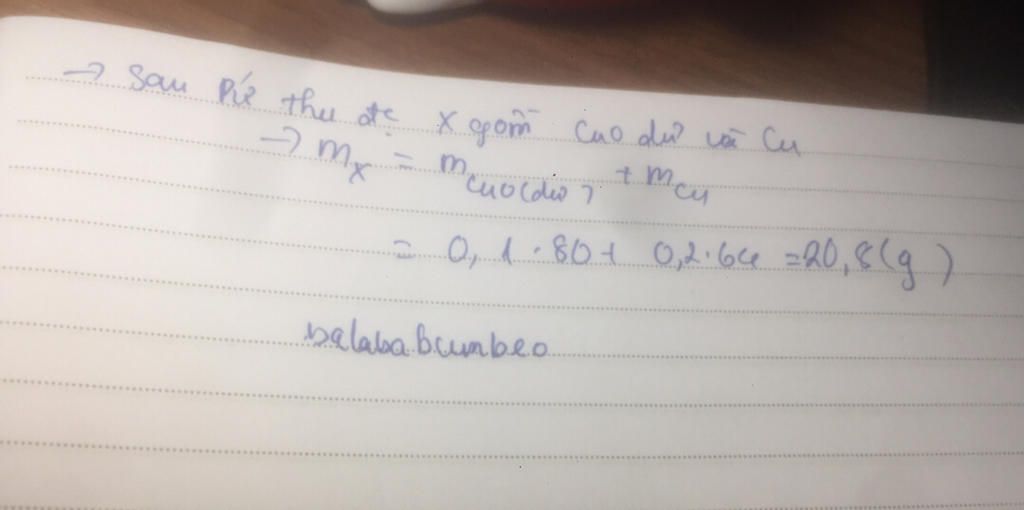 → Sau pứ thu đc X gồm CuO dư và Cu
→ mX = mCuO(dư) + mCu
= 0,1 . 80 + 0,2 . 64 = 20,8 (g)
balababcumbeo